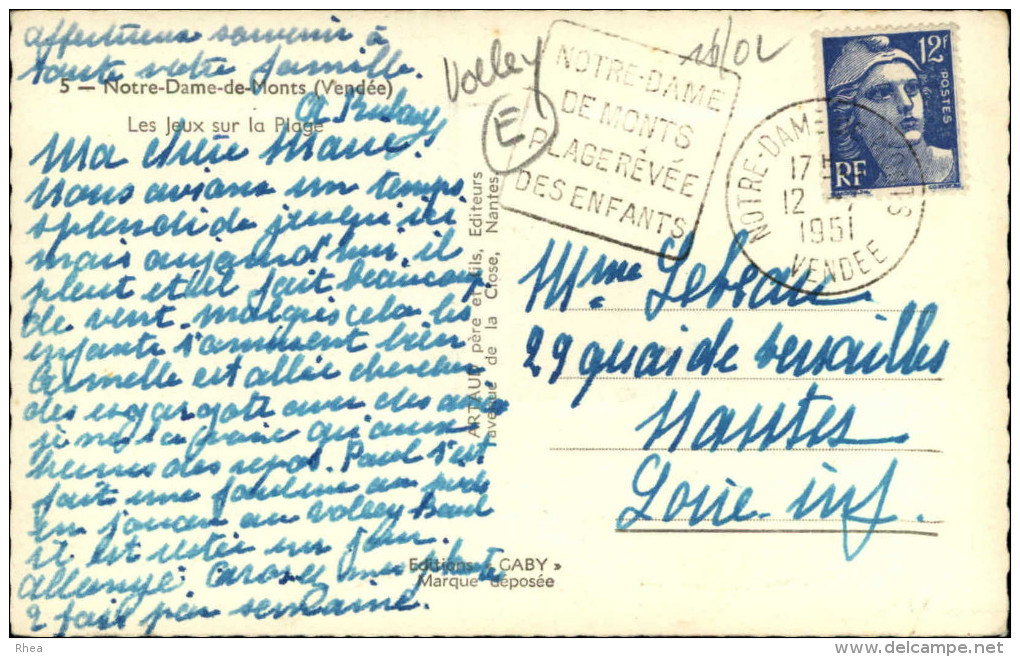 affectueux souvenir à
toute votre famille.
5 — Notre-Dame-de-Monts (Vendée)
Les Jeux sur la Plage
Ma chère Marie.
Nous avions un temps
splendide jusqu'ici
mais aujourd'hui il
pleut et il fait beaucoup
de vent. malgrés cela les
enfants s'amusent bien
Armelle est allée chercher
des esgargots avec des amis
je ne la vois qu'aux
heures des repas. Paul s'est
fait une foulure au pied
en jouan au Volley-Baal
il est resté un jour
allongé
2 fois par semaine.
ARTAUD père et fils, Editeurs
avenue de la Close, Nantes
Editions « GABY »
Marque déposée
Volley
E
16/02
NOTRE-DAME
DE MONTS
PLAGE RÊVÉE
DES ENFANTS
NOTRE-DAME
17
12
1951
VENDEE
12F
POSTES
RF
Mme Lebeau
29 quai de Versailles
Nantes
Loire inf.
Rhea
http://www.delcampe.net